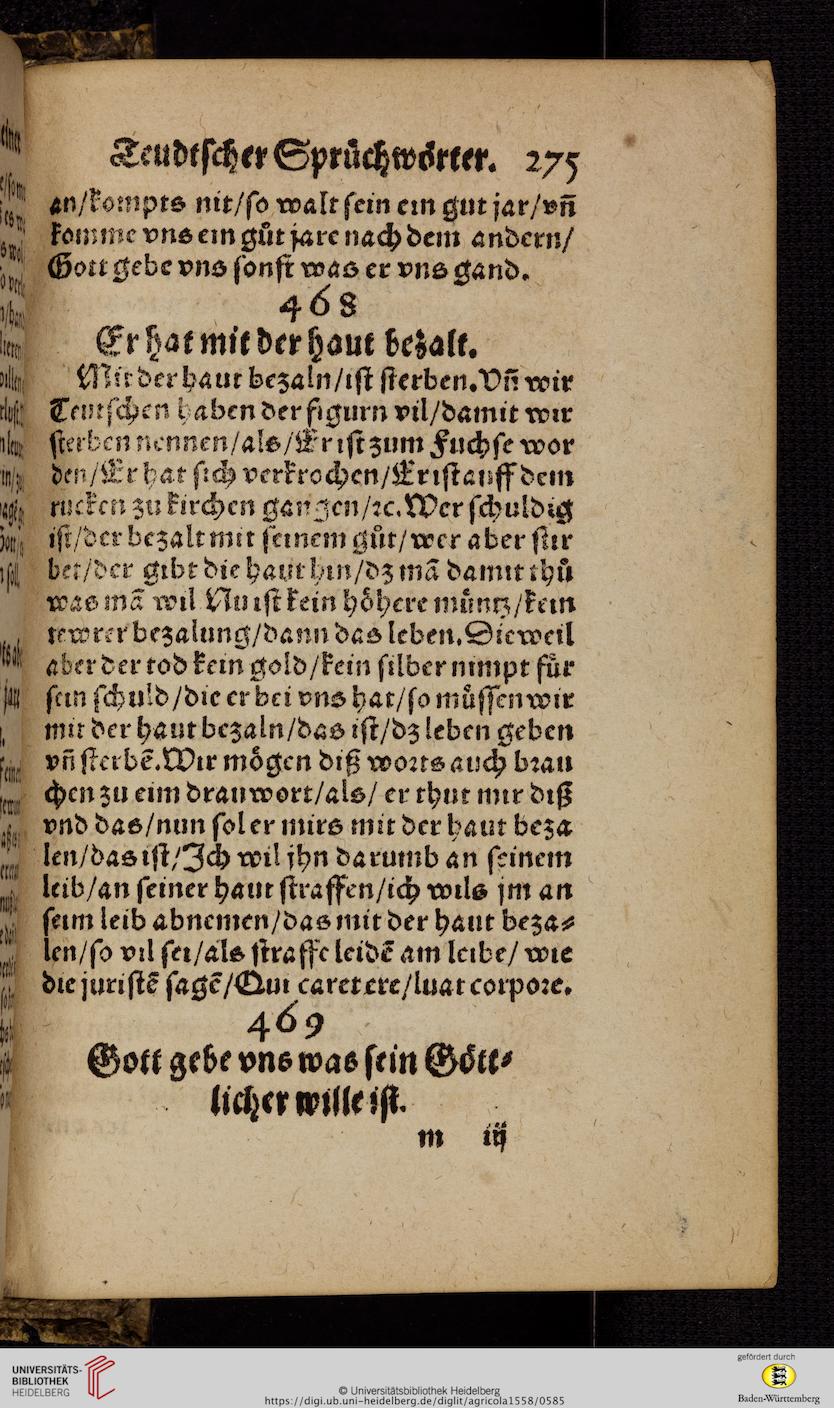 Teudtscher Sprüchwörter. 275
an/kompts nit/so walt sein ein gut jar/vñ
komme vns ein gůt jare nach dem andern/
Gott gebe vns sonst was er vns gand.
468
Er hat mit der haut bezalt.
Mit der haut bezaln/ist sterben. Vñ wir
Teutschen haben der figurn vil/damit wir
sterben nennen/als/Er ist zum Fuchse wor
den/Er hat sich verkrochen/Er ist auff dem
rucken zu kirchen gangen/ꝛc. Wer schuldig
ist/der bezalt mit seinem gůt/wer aber stir
bet/der gibt die haut hin/dz mã damit thů
was mã wil Nu ist kein höhere müntz/kein
tewrer bezalung/dann das leben. Dieweil
aber der tod kein gold/kein silber nimpt für
sein schuld/die er bei vns hat/so müssen wir
mit der haut bezaln/das ist/dz leben geben
vñ sterbẽ. Wir mögen diß worts auch brau
chen zu eim drauwort/als/ er thut mir diß
vnd das/nun sol er mirs mit der haut beza
len/das ist/Ich wil jhn darumb an seinem
leib/an seiner haut straffen/ich wils jm an
seim leib abnemen/das mit der haut beza⸗
len/so vil sei/als straffe leidẽ am leibe/ wie
die juristẽ sagẽ/Qui caret ere/luat corpore.
469
Gott gebe vns was sein Gött⸗
licher wille ist.
m iij
UNIVERSITÄTS-
BIBLIOTHEK
HEIDELBERG
© Universitätsbibliothek Heidelberg
https://digi.ub.uni-heidelberg.de/diglit/agricola1558/0585
gefördert durch
Baden-Württemberg